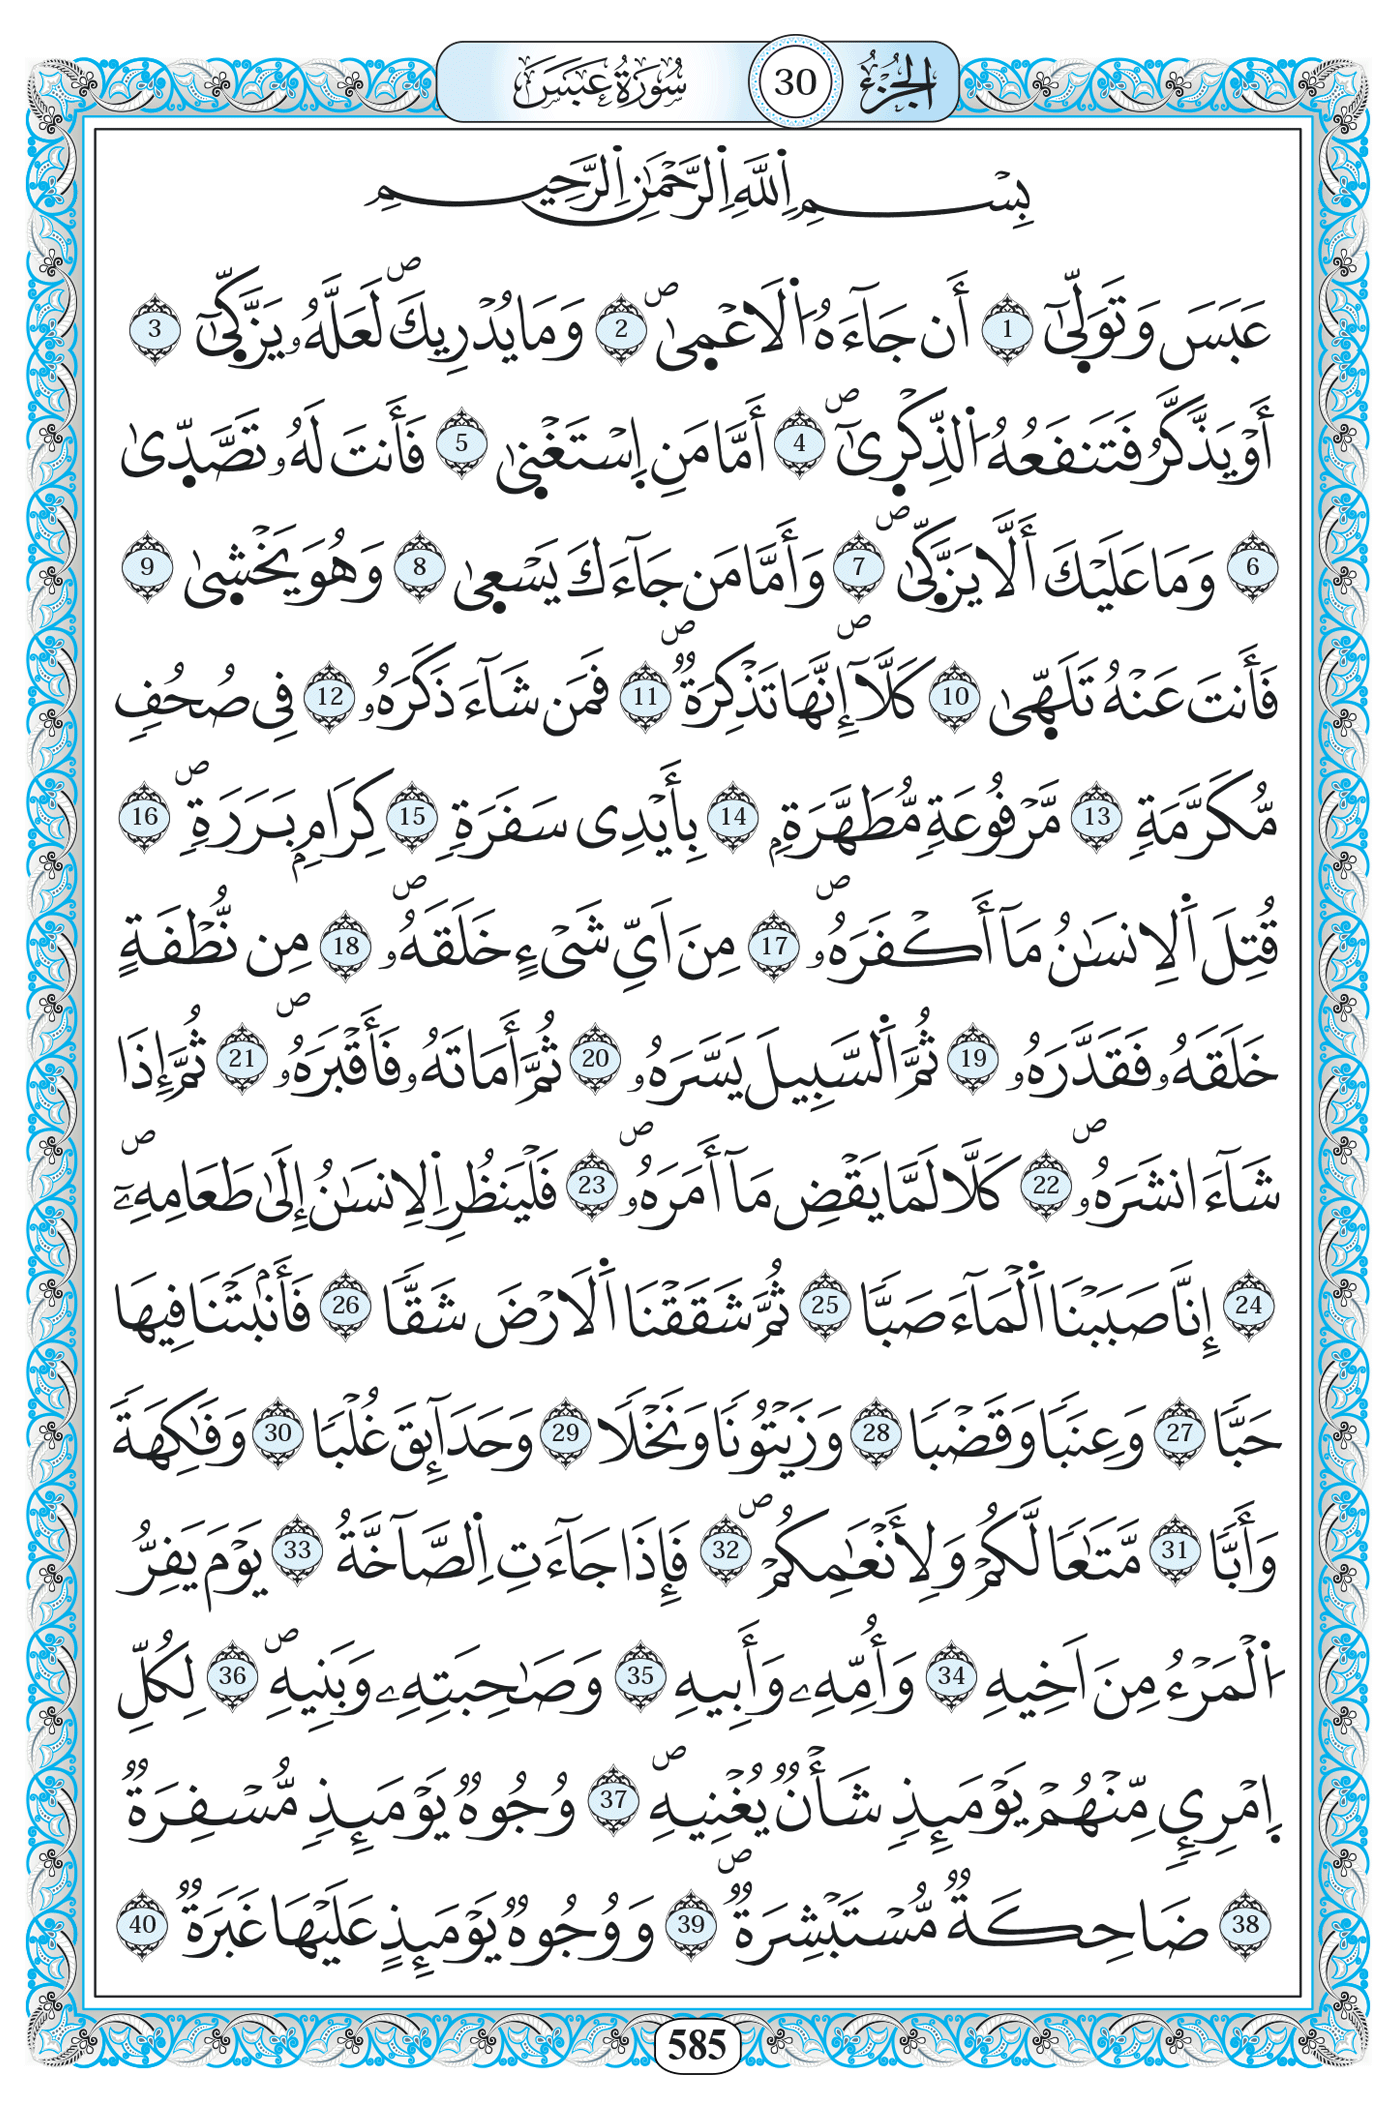 الجزء 30 سورة عبس
بِسْمِ اِ۬للَّهِ اِ۬لرَّحْمَٰنِ اِ۬لرَّحِيمِ
عَبَسَ وَتَوَلّ۪ىٰٓ 1 أَن جَآءَهُ اُ۬لَاعْم۪ىٰۖ 2 وَمَا يُدْرِيكَۖ لَعَلَّهُۥ يَزَّكّ۪ىٰٓ 3
أَوْ يَذَّكَّرُ فَتَنفَعُهُ اُ۬لذِّكْر۪ىٰٓۖ 4 أَمَّا مَنِ اِ۪سْتَغْن۪ىٰ 5 فَأَنتَ لَهُۥ تَصَّدّ۪ىٰ
6 وَمَا عَلَيْكَ أَلَّا يَزَّكّ۪ىٰۖ 7 وَأَمَّا مَن جَآءَكَ يَسْع۪ىٰ 8 وَهُوَ يَخْش۪ىٰ 9
فَأَنتَ عَنْهُ تَلَهّ۪ىٰ 10 كَلَّآۖ إِنَّهَا تَذْكِرَةٞۖ 11 فَمَن شَآءَ ذَكَرَهُۥ 12 فِى صُحُفٖ
مُّكَرَّمَةٖ 13 مَّرْفُوعَةٖ مُّطَهَّرَةِۢ 14 بِأَيْدِى سَفَرَةٖ 15 كِرَامِۢ بَرَرَةٖۖ 16
قُتِلَ اَ۬لِانسَٰنُ مَآ أَكْفَرَهُۥۖ 17 مِنَ اَيِّ شَىْءٍ خَلَقَهُۥۖ 18 مِن نُّطْفَةٍ
خَلَقَهُۥ فَقَدَّرَهُۥ 19 ثُمَّ اَ۬لسَّبِيلَ يَسَّرَهُۥ 20 ثُمَّ أَمَاتَهُۥ فَأَقْبَرَهُۥۖ 21 ثُمَّ إِذَا
شَآءَ انشَرَهُۥۖ 22 كَلَّا لَمَّا يَقْضِ مَآ أَمَرَهُۥۖ 23 فَلْيَنظُرِ اِ۬لِانسَٰنُ إِلَىٰ طَعَامِهِۦٓۖ
24 إِنَّا صَبَبْنَا اَ۬لْمَآءَ صَبّٗا 25 ثُمَّ شَقَقْنَا اَ۬لَارْضَ شَقّٗا 26 فَأَنۢبَتْنَا فِيهَا
حَبّٗا 27 وَعِنَبٗا وَقَضْبٗا 28 وَزَيْتُونٗا وَنَخْلٗا 29 وَحَدَآئِقَ غُلْبٗا 30 وَفَٰكِهَةٗ
وَأَبّٗا 31 مَّتَٰعٗا لَّكُمْ وَلِأَنْعَٰمِكُمْۖ 32 فَإِذَا جَآءَتِ اِ۬لصَّآخَّةُ 33 يَوْمَ يَفِرُّ
اُ۬لْمَرْءُ مِنَ اَخِيهِ 34 وَأُمِّهِۦ وَأَبِيهِ 35 وَصَٰحِبَتِهِۦ وَبَنِيهِۖ 36 لِكُلِّ
اِ۪مْرِےٕٖ مِّنْهُمْ يَوْمَئِذٖ شَأْنٞ يُغْنِيهِۖ 37 وُجُوهٞ يَوْمَئِذٖ مُّسْفِرَةٞ
38 ضَاحِكَةٞ مُّسْتَبْشِرَةٞۖ 39 وَوُجُوهٞ يَوْمَئِذٍ عَلَيْهَا غَبَرَةٞ 40
585